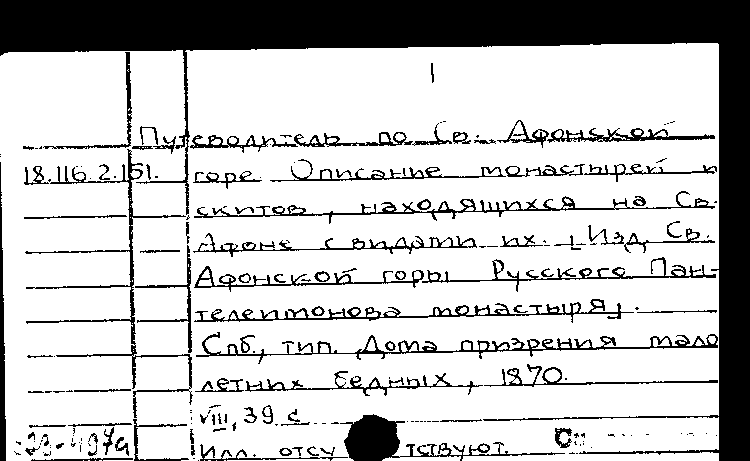 1
Путеводитель по Св. Афонской
18.116.2.151. горе Описание монастырей и
скитов, находящихся на Св.
Афоне с видами их. [Изд. Св.
Афонской горы Русского Пан-
телеимонова монастыря].
Спб., тип. Дома призрения мало
летних бедных, 1870.
VIII, 39 с
Илл. отсутствуют.